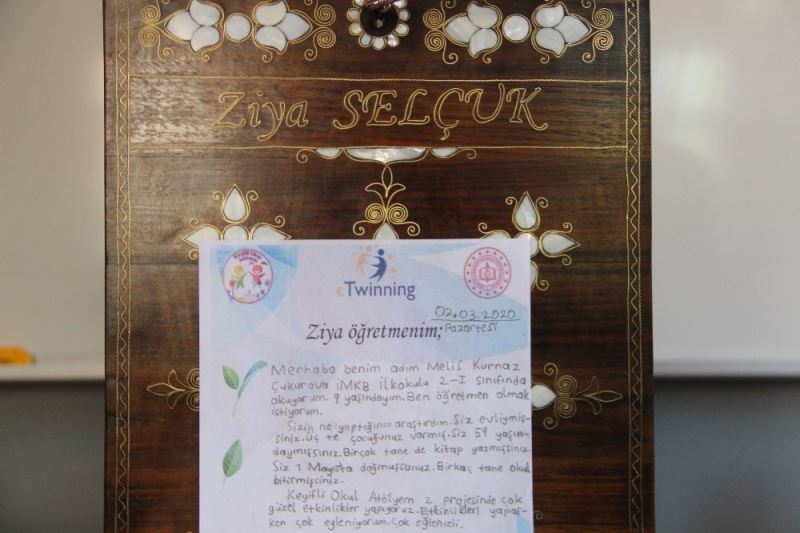 Ziya SELÇUK
eTwinning
02.03.2020
Pazartesi
Ziya öğretmenim;
Merhaba benim adım Melis Kurnaz
Çukurova İMKB İlkokulu 2-I sınıfında
okuyorum. 9 yaşındayım. Ben öğretmen olmak
istiyorum.
Sizin ne yaptığının araştırdım. Siz evliymiş-
siniz. Üç te çocuğunuz varmış. Siz 59 yaşın-
daymışsınız. Birçok tane de kitap yazmışsınız.
Siz 1 Mayısta doğmuşsunuz. Birkaç tane okul
bitirmişsiniz.
Keyifli Okul Atölyem 2 projesinde çok
güzel etkinlikler yapıyoruz. Etkinlikleri yapar-
ken çok eyleniyorum. Çok eğlenceli.